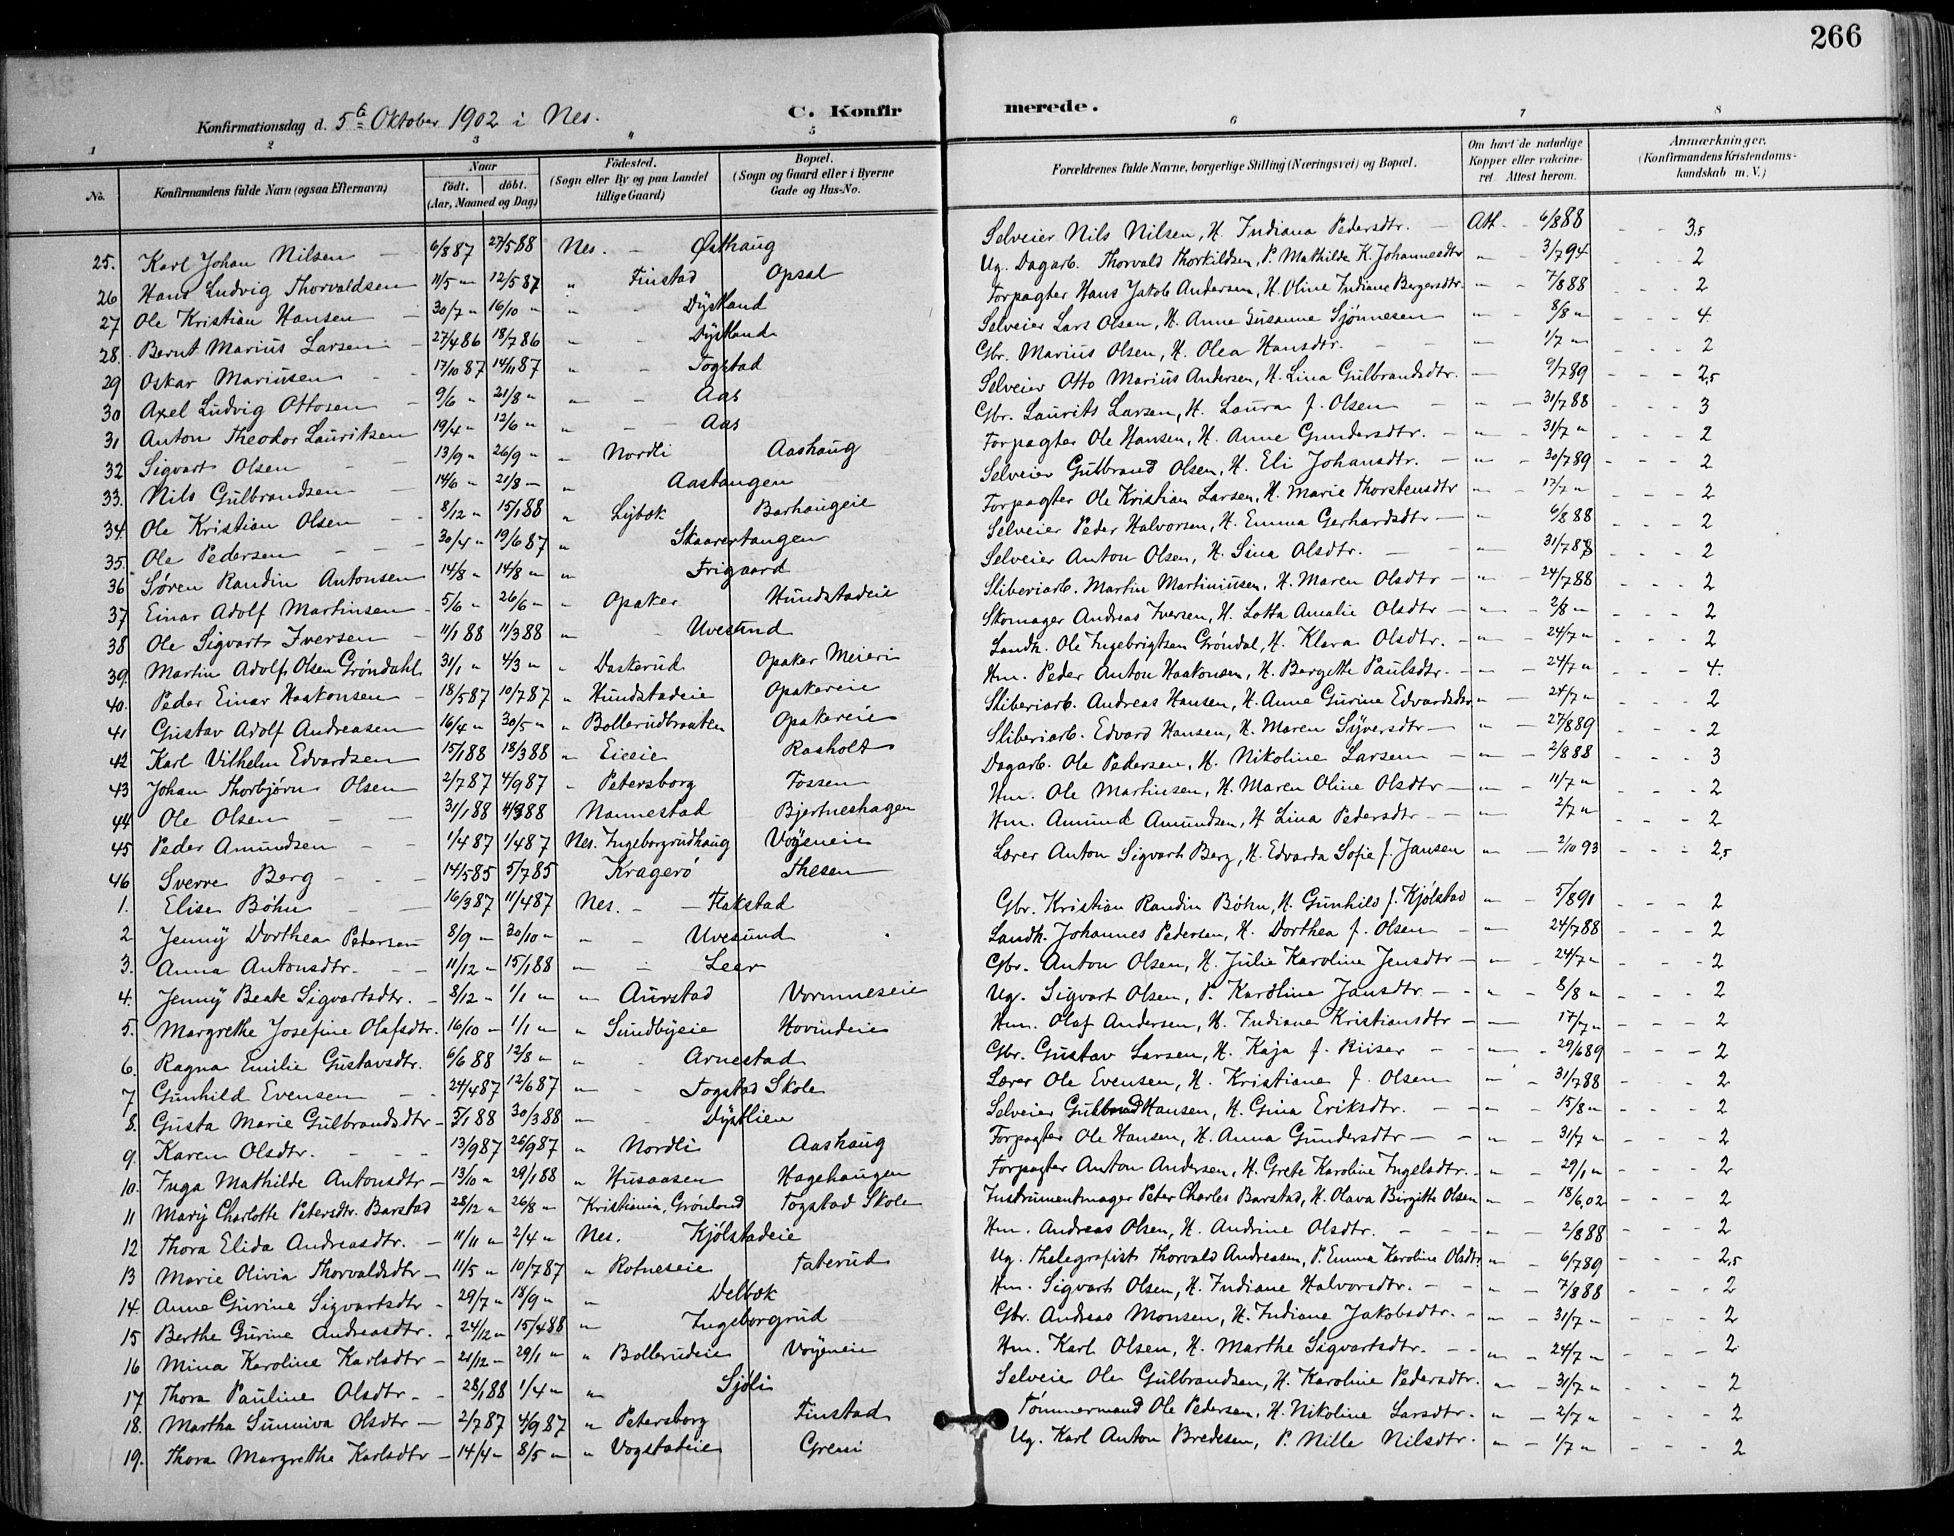 266
Konfirmationsdag d. 5te Oktober 1902 i Nes.
C. Konfir merede.
1 2 3 4 5 6 7 8
No. Konfirmandens fulde Navn (ogsaa Efternavn) Naar født. døbt. (Aar, Maaned og Dag) Fødested. (Sogn eller By og paa Landet tillige Gaard) Bopæl. (Sogn og Gaard eller i Byerne Gade og Hus-No. Forældrenes fulde Navne, borgerlige Stilling (Næringsvei) og Bopæl. Om havt de naturlige Kopper eller vakcineret. Attest herom. Anmærkninger. (Konfirmandens Kristendomskundskab m. V.)
25. Karl Johan Nilsen 6/8 87 27/5 88 Nes. Østhaug Selveier Nils Nilsen, H. Indiana Pedersdtr. Att. 6/8 88 3,5
26 Hans Ludvig Thorvaldsen 11/5 " 12/5 87 " Finstad Opsal Ug. Dagarb. Thorvald Thorkildsen, P. Mathilde K. Johannesdtr " 3/7 94 2
27 Ole Kristian Hansen 30/7 " 16/10 " " Dystland Forpagter Hans Jakob Andersen, H. Oline Indiane Bergersdtr. " 7/8 88 2
28. Bernt Marius Larsen 27/4 86 18/7 86 " Dystland Selveier Lars Olsen, H. Anne Susanne Sjønnesen " 8/8 " 4
29 Oskar Mariusen 17/10 87 14/11 87 " Togstad Gbr. Marius Olsen, H. Olea Hansdtr. " 1/7 " 2
30 Axel Ludvig Ottosen 9/6 " 21/8 " " Aas Selveier Otto Marius Andersen, H. Lina Gulbrandsdtr. " 9/7 89 2,5
31 Anton Theodor Lauritsen 19/4 " 12/6 " " Aas Gbr. Laurits Larsen, H. Laura f. Olsen " 31/7 88 3
32 Sigvart Olsen 13/9 " 26/9 " " Nordli Aashaug Forpagter Ole Hansen, H. Anne Gundersdtr. " 31/7 " 2
33. Nils Gulbrandsen 14/6 " 21/8 " " Aastangen Selveier Gulbrand Olsen, H. Eli Johansdtr. " 30/7 89 2
34. Ole Kristian Olsen 8/12 " 15/1 88 " Lybæk Barhaugeie Forpagter Ole Kristian Larsen, H. Marie Thorstensdtr " 17/7 " 2
35. Ole Pedersen 30/4 " 19/6 87 " Skaarertangen Selveier Peder Halvorsen, H. Emma Gerhardsdtr " 6/8 88 2
36 Søren Randin Antonsen 14/8 " 14/8 " " Frigaard Selveier Anton Olsen, H. Sina Olsdtr. " 31/7 88 2
37 Einar Adolf Martinsen 5/6 " 26/6 " " Opaker Hundstadeie Sliberiarb. Martin Martiniusen, H. Maren Olsdtr " 24/7 88 2
38 Ole Sigvart Iversen 11/1 88 11/3 88 " Uvesund Skomager Andreas Iversen, H. Lotta Amalie Olsdtr " 2/8 " 2
39. Martin Adolf Olsen Grøndahl 31/1 " 4/3 " " Daskerud Opaker Meieri Landh. Ole Ingebrigtsen Grøndal, H. Klara Olsdtr. " 24/7 " 2
40. Peder Einar Haakonsen 18/5 87 10/7 87 " Hundstadeie Opakereie Hm. Peder Anton Haakonsen, H. Bergethe Paulsdtr. " 24/7 " 4.
41 Gustav Adolf Andreasen 16/4 " 30/5 " " Bollerudbraaten Opakereie Sliberiarb. Andreas Hansen, H. Anne Gurine Edvardsdtr " 24/7 " 2
42 Karl Vilhelm Edvardsen 15/1 88 18/3 88 " Eieeie Rasholt Sliberiarb. Edvard Hansen, H. Maren Syversdtr " 27/8 89 2
43 Johan Thorbjørn Olsen 2/7 87 4/9 87 " Petersborg Fossen Dagarb. Ole Pedersen, H. Nikoline Larsen " 2/8 88 3
44 Ole Olsen 31/1 88 4/3 88 Nannestad Bjertneshagen Hm. Ole Martinsen, H. Maren Oline Olsdtr " 11/7 " 2
45 Peder Amundsen 1/4 87 1/4 87 Nes. Ingeborgrudhaug Vøyeneie Hm. Amund Amundsen, H. Lina Pedersdtr " 2/7 " 2
46 Sverre Berg 14/5 85 5/7 85 Kragerø Thesen Lærer Anton Sigvart Berg, H. Edvarda Sofie f. Jansen " 2/10 93 2,5
1. Elise Bøhn 16/3 87 11/4 87 Nes. Flakstad Gbr. Kristian Randin Bøhn, H. Gunhild f. Kjølstad " 5/8 91 2
2 Jenny Dorthea Petersen 8/9 " 30/10 " " Uvesund Landh. Johannes Pedersen, H. Dorthea f. Olsen " 24/7 88 2
3. Anna Antonsdtr. 11/12 " 15/1 88 " Leer Gbr. Anton Olsen, H. Julie Karoline Jensdtr " 24/7 " 2
4. Jenny Beate Sigvartsdtr. 8/12 " 1/1 " " Aurstad Vormneseie Ug. Sigvart Olsen, P. Karoline Jansdtr " 8/8 " 2
5. Margrethe Josefine Olafsdtr. 16/10 " 1/1 " " Sundbyeie Hovindeie Hm. Olaf Andersen, H. Indiane Kristiansdtr " 17/7 " 2
6. Ragna Emilie Gustavsdtr. 6/6 88 12/8 " " Arnestad Gbr. Gustav Larsen, H. Kaja f. Riiser " 29/6 89 2
7 Gunhild Evensen 24/4 87 12/6 87 " Togstad Skole Lærer Ole Evensen, H. Kristiane f. Olsen " 31/7 88 2
8. Gusta Marie Gulbrandsdtr 5/1 88 30/3 88 " Dystlien Selveier Gulbrand Hansen, H. Gina Eriksdtr. " 15/8 " 2
9. Karen Olsdtr. 13/9 87 26/9 87 " Nordli Aashaug Forpagter Ole Hansen, H. Anna Gundersdtr " 31/7 " 2
10. Inga Mathilde Antonsdtr 13/10 " 29/1 88 " Husaasen Hagehaugen Forpagter Anton Andersen, H. Grete Karoline Ingelsdtr. " 29/1 " 2
11 Mary Charlotte Petersdtr. Barstad 28/12 " 26/8 " Kristiania, Grønland Togstad Skole Instrumentmager Peter Charles Barstad, H. Olava Birgitte Olsen " 18/6 02 2
12 Thora Elida Andreasdtr. 11/11 " 2/4 " Nes. Kjølstadeie Hm. Andreas Olsen, H. Andrine Olsdtr. " 2/8 88 2
13 Marie Olivia Thorvaldsdtr 11/5 " 10/7 87 " Rotneseie Taterud Ug. Thelegrafist Thorvald Andreasen, P. Emma Karoline Olsdtr " 6/7 89 2,5
14. Anne Gurine Sigvartsdtr 29/7 " 18/9 " " Delbæk Hm. Sigvart Olsen, H. Indiane Halvorsdtr. " 7/8 88 2
15 Berthe Gurine Andreasdtr. 24/12 " 15/4 88 " Ingeborgrud Gbr. Andreas Monsen, H. Indiane Jakobsdtr. " 31/7 " 2
16 Mina Karoline Karlsdtr 21/12 " 29/1 " " Bollerudeie Vøyeneie Hm. Karl Olsen, H. Marthe Sigvartsdtr. " 24/7 " 2
17 Thora Pauline Olsdtr 28/1 88 1/4 " " Sjøli Selveier Ole Gulbrandsen, H. Karoline Pedersdtr. " 31/7 " 2
18. Martha Sunniva Olsdtr 2/7 87 4/9 87 " Petersborg Finstad Tømmermand Ole Pedersen, H. Nikoline Larsdtr. " 2/7 " 2
19. Thora Margrethe Karlsdtr 14/4 " 8/5 " " Vogstadeie Greni Ug. Karl Anton Bredesen, P. Nille Nilsdtr. " 1/7 " 2